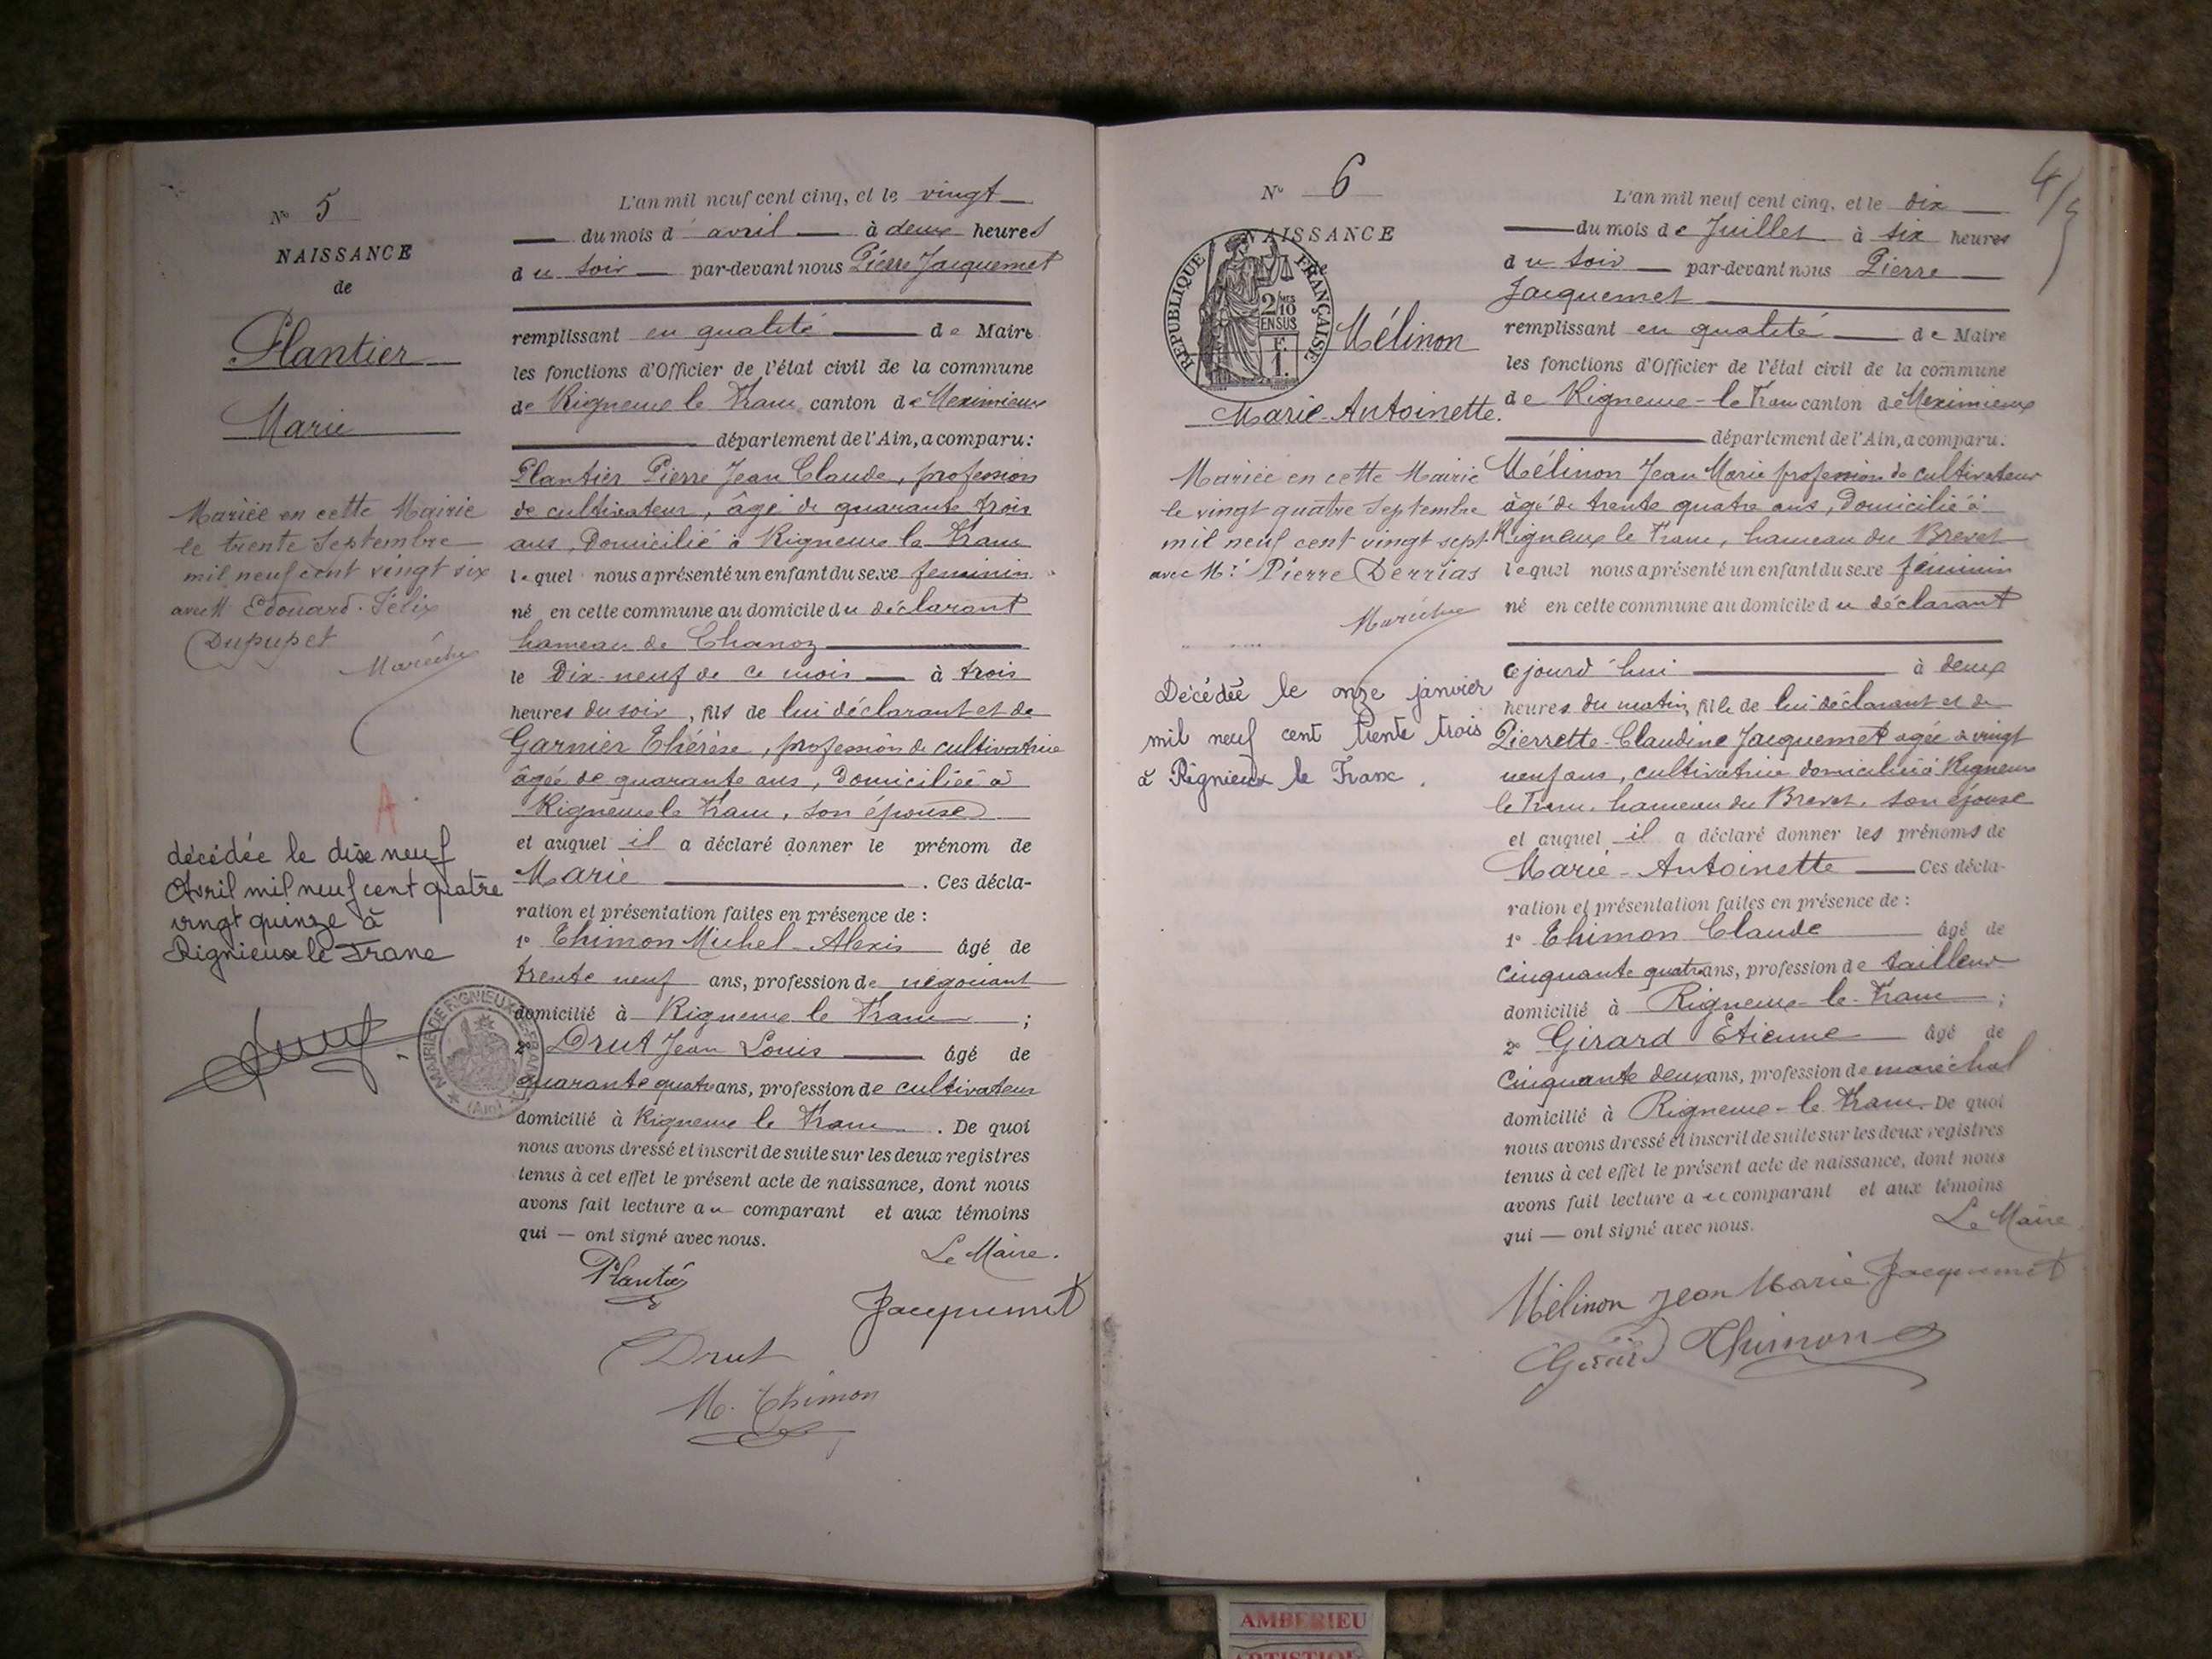 N° 5
NAISSANCE
de
Plantier
Marie
Mariée en cette Mairie
le trente Septembre
mil neuf cent vingt six
avec M Edouard-Félix
Dupupet
A
décédée le dixe neuf
Avril mil neuf cent quatre
vingt quinze à
Rignieux le Franc
MAIRIE DE RIGNIEUX-LE-FRANC
(Ain)
L'an mil neuf cent cinq, et le vingt
du mois d'avril à deux heures
du soir par-devant nous Pierre Jacquemet
remplissant en qualité de Maire
les fonctions d'Officier de l'état civil de la commune
de Rigneux le Franc canton de Meximieux
département de l'Ain, a comparu:
Plantier Pierre Jean Claude, profession
de cultivateur, âgé de quarante trois
ans, Domicilié à Rigneux le Franc
lequel nous a présenté un enfant du sexe féminin
né en cette commune au domicile du déclarant
hameau de Chanoz
le Dix-neuf de ce mois à trois
heures du soir, fils de lui déclarant et de
Garnier Thérèse, profession de cultivatrice
âgée de quarante ans, Domiciliée à
Rigneux le Franc, son épouse
et auquel il a déclaré donner le prénom de
Marie . Ces décla-
ration et présentation faites en présence de :
1° Thimon Michel-Alexis âgé de
trente neuf ans, profession de négociant
domicilié à Rigneux le Franc ;
2° Drut Jean Louis âgé de
quarante quatre ans, profession de cultivateur
domicilié à Rigneux le Franc . De quoi
nous avons dressé et inscrit de suite sur les deux registres
tenus à cet effet le présent acte de naissance, dont nous
avons fait lecture au comparant et aux témoins
qui — ont signé avec nous.
Le Maire.
Plantier
Jacquemet
Drut
M. Thimon
4/5
N° 6
NAISSANCE
de
REPUBLIQUE FRANÇAISE
2/10
EN SUS
F.
1.
Mélinon
Marie-Antoinette.
Mariée en cette Mairie
le vingt quatre Septembre
mil neuf cent vingt sept
avec Mr Pierre Derrias
Décédée le onze janvier
mil neuf cent trente trois
à Rignieux le Franc.
L'an mil neuf cent cinq, et le dix
du mois de Juillet à six heures
du soir par-devant nous Pierre
Jacquemet
remplissant en qualité de Maire
les fonctions d'Officier de l'état civil de la commune
de Rigneux-le Franc canton de Meximieux
département de l'Ain, a comparu:
Mélinon Jean Marie profession de cultivateur
âgé de trente quatre ans, Domicilié à
Rigneux le Franc, hameau du Brevet
lequel nous a présenté un enfant du sexe féminin
né en cette commune au domicile du déclarant
cejourd'hui à deux
heures du matin, fille de lui déclarant et de
Pierrette-Claudine Jacquemet agée de vingt
neuf ans, cultivatrice domiciliée à Rigneux
le Franc, hameau du Brevet, son épouse
et auquel il a déclaré donner les prénoms de
Marie-Antoinette Ces décla-
ration et présentation faites en présence de :
1° Thimon Claude âgé de
cinquante quatre ans, profession de tailleur
domicilié à Rigneux-le-Franc ;
2° Girard Etienne âgé de
Cinquante deux ans, profession de maréchal
domicilié à Rigneux-le Franc. De quoi
nous avons dressé et inscrit de suite sur les deux registres
tenus à cet effet le présent acte de naissance, dont nous
avons fait lecture au comparant et aux témoins
qui — ont signé avec nous.
Le Maire
Mélinon Jean Marie Jacquemet
Girard Thimon
AMBERIEU